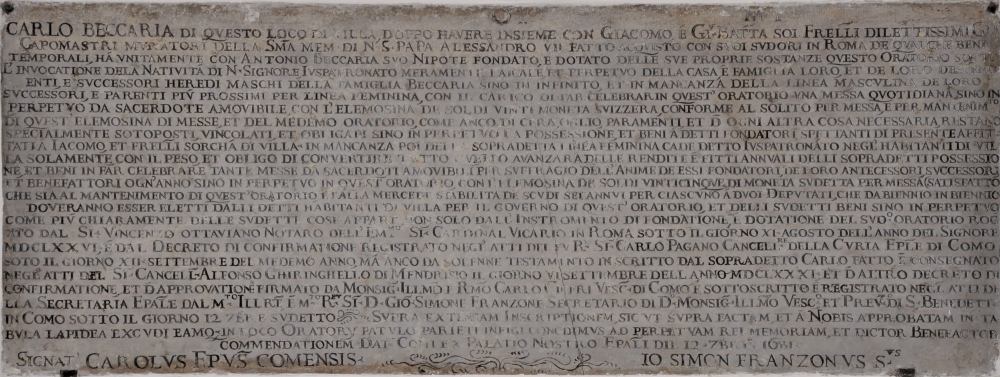 CARLO BECCARIA DI QVESTO LOCO DI VILLA, DOPPO HAVERE INSIEME CON GIACOMO, E GIO: BATTA SOI FRELLI DILETTISSIMI
CAPOMASTRI MVRATORI DELLA SMA MEM: DI N. S. PAPA ALESSANDRO VII FATTO ACQVISTO CON SVOI SVDORI IN ROMA DE QVALCHE BENI
TEMPORALI, HÀ VNITAMENTE CON ANTONIO BECCARIA SVO NIPOTE FONDATO, E DOTATO DELLE SVE PROPRIE SOSTANZE QVESTO ORATORIO SOTTO
L'INVOCATIONE DELA NATIVITÀ DI N. SIGNORE IVSPATRONATO MERAMENTE LAICALE, ET PERPETVO DELLA CASA E FAMIGLIA LORO, ET DE LORO
ENTI, E SVCCESSORI HEREDI MASCHI DELLA FAMIGLIA BECCARIA SINO IN INFINITO, ET IN MANCANZA DELLA LINEA MASCVLINA DE LORO
SVCCESSORI, E PARENTI PIV PROSSIMI PER LINEA FEMININA, CON IL CARICO DI FAR CELEBRAR IN QVEST' ORATORIO VNA MESSA QVOTIDIANA SINO IN
PERPETVO DA SACERDOTE AMOVIBILE CON L'ELEMOSINA DE SOLDI VINTI MONETA SVIZZERA CONFORME AL SOLITO PER MESSA, E PER MANTENIM.
DI QVEST' ELEMOSINA DI MESSE, ET DEL MEDEMO ORATORIO, COME ANCO DI CERA, OGLIO, PARAMENTI, ET D'OGNI ALTRA COSA NECESSARIA, RESTANO
SPECIALMENTE SOTOPOSTI, VINCOLATI, ET OBLIGATI SINO IN PERPETVO LA POSSESSIONE, ET BENI À DETTI FONDATORI SPETTANTI DI PRESENTE AFFIT
TATI À IACOMO, ET FRELLI SORCHA DI VILLA. IN MANCANZA POI DELLA SOPRADETTA LINEA FEMININA CADE DETTO IVSPATRONATO NEGL' HABITANTI DI VIL
LA SOLAMENTE CON IL PESO, ET OBLIGO DI CONVERTIRE TVTTO QVELLO AVANZARA DELLE RENDITE E FITTI ANNVALI DELLI SOPRADETTI POSSESSIO
NE, ET BENI IN FAR CELEBRARE TANTE MESSE DA SACERDOTI AMOVIBILI PER SVFFRAGIO DELL' ANIME DE ESSI FONDATORI, DE LORO ANTECESSORI, SVCCESSORI
ET BENEFATTORI OGN' ANNO SINO IN PERPETVO IN QVEST' ORATORIO CON L'ELEMOSINA DE SOLDI VINTICINQVE DI MONETA SVDETTA PER MESSA, SATISFATTO
CHE SIA AL MANTENIMENTO DI QVEST' ORATORIO, ET ALLA MERCEDE STABILITA DE SCVDI SEI ANNVI PER CIASCVNO À DVOI DEPVTATI, CHE DABIENNIO IN BIENNIO
DOVERANNO ESSER ELETTI DALLI DETTI HABITANTI DI VILLA PER IL GOVERNO DI QVEST' ORATORIO, ET DELLI SVDETTI BENI SINO IN PERPETVO
COME PIV CHIARAMENTE DELLE SVDETTE COSE APPARE NON SOLO DALL' INSTROMENTO DI FONDATIONE, E DOTATIONE DEL SVDO ORATORIO ROG
ATO DAL SR. VINCENZO OTTAVIANO NOTARO DELL' EMMO. SR. CARDINAL VICARIO IN ROMA SOTTO IL GIORNO XI AGOSTO DELL' ANNO DEL SIGNORE
MDCLXXVI, E DAL DECRETO DI CONFIRMATIONE REGISTRATO NEGL' ATTI DEL FV R. SR. CARLO PAGANO CANCELIRE. DELLA CVRIA EPLE. DI COMO
SOTO IL GIORNO XII SETTEMBRE DEL MEDEMO ANNO, MÀ ANCO DA SOLENNE TESTAMENTO IN SCRITTO DAL SOPRADETTO CARLO FATTO E CONSEGNATO
NEGL' ATTI DEL SR. CANCELL. ALFONSO GHIRINGHELLO DI MENDRISIO IL GIORNO VI SETTEMBRE DELL' ANNO MDCLXXXI, ET D'ALTRO DECRETO DI
CONFIRMATIONE, ET D'APPROVATION FIRMATO DA MONSIG. ILLMO, E RMO CARLO CIPERI VESC. DI COMO E SOTTOSCRITTO E REGISTRATO NEGL' ATTI DI
LLA SECRETARIA EPALE. DAL MTO ILLRE, E MTO RDO SR. D. GIO: SIMONE FRANZONE SECRETARIO DI D. MONSIG. ILLMO VESCO. ET PREVTO. DI S. BENEDETTI
IN COMO SOTTO IL GIORNO 12 7BE SVDETTO. SVPRA EXTENTAM INSCRIPTIONEM, SICVT SVPRA FACTAM, ET À NOBIS APPROBATAM IN TA
BVLA LAPIDEA EXCVDI EAMQ. IN LOCO ORATORY PATVLO PARIETI INFIGI CONCEDIMVS AD PERPETVAM REI MEMORIAM, ET DICTOR BENEFACTOR
COMMENDATIONEM DAT. COMI EX PALATIO NOSTRO EPALI DIE 12 7BRIS 1681
SIGNAT CAROLVS EPVS COMENSIS IO SIMON FRANZONVS SVS